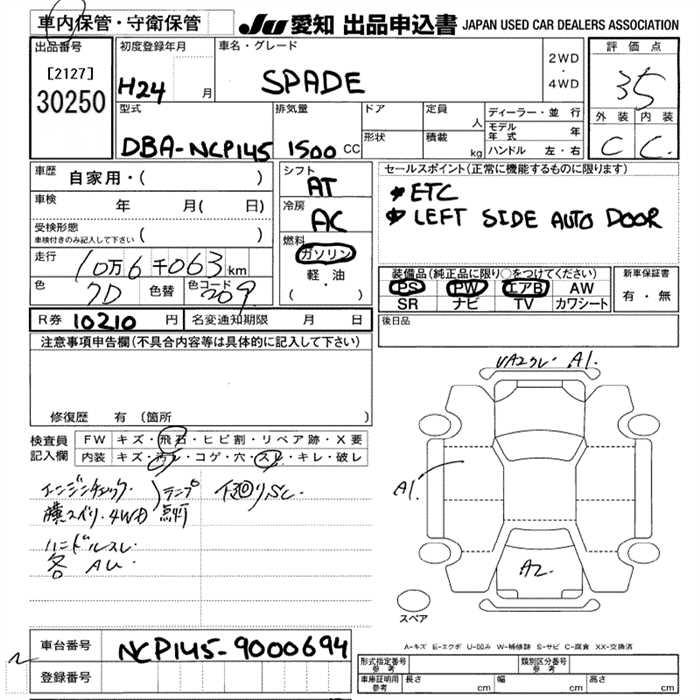 車内保管・守衛保管
JU 愛知 出品申込書 JAPAN USED CAR DEALERS ASSOCIATION
出品番号
[2127]
30250
初度登録年月
H24 月
車名・グレード
SPADE
2WD
・
4WD
評価点
3.5
外装 内装
C C
型式
DBA-NCP145
排気量
1500 CC
ドア
形状
定員 人
積載 kg
ディーラー・並行
モデル年式 年
ハンドル 左・右
車歴 自家用・( )
車検 年 月( 日)
受検形態
車検付きのみ記入して下さい ( )
走行 10万6千063km
色 7D 色替 色コード 209
シフト
AT
冷房
AC
燃料
ガソリン
軽・油
( )
セールスポイント(正常に機能するものに限ります)
ETC
LEFT SIDE AUTO DOOR
装備品(純正品に限り○をつけてください)
PS PW エアB AW
SR ナビ TV カワシート
新車保証書
有・無
R券 10210 円 名変通知期限 月 日
後日品
注意事項申告欄(不具合内容等は具体的に記入して下さい)
修復歴 有(箇所
検査員記入欄
FW キズ・飛石・ヒビ割・リペア跡・X要
内装 キズ・汚レ・コゲ・穴・スレ・キレ・破レ
エンジンチェック・ ランプ 下廻りSC
横スベリ・4WD 点灯
ハンドルスレ
各 AU
A1
A1
A2
スペア
A-キズ E-エクボ U-凹み W-補修跡 S-サビ C-腐食 XX-交換済
車台番号 NCP145-9000694
登録番号
型式指定番号 参考
類別区分番号 参考
車庫証明用 参考 長さ cm 幅 cm 高さ cm